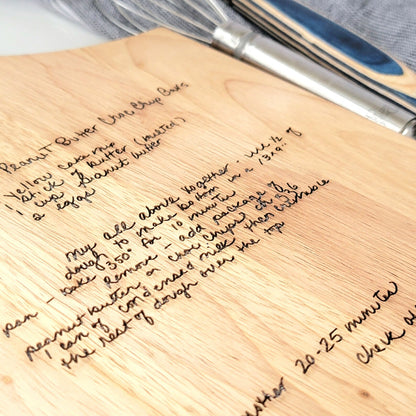 Peanut Butter Choc Chip Bars
1 Yellow cake mix
1 stick of butter (melted)
1 cup peanut butter
2 eggs
Mix all above together - use 1/2 of
dough to make bottom in a 13x9"
pan - bake 350° for 10 minutes
Remove - add package of
peanut butter & choc chips, 
1 can of condensed milk then crumble
the rest of dough over the top
another 20-25 minutes
check at